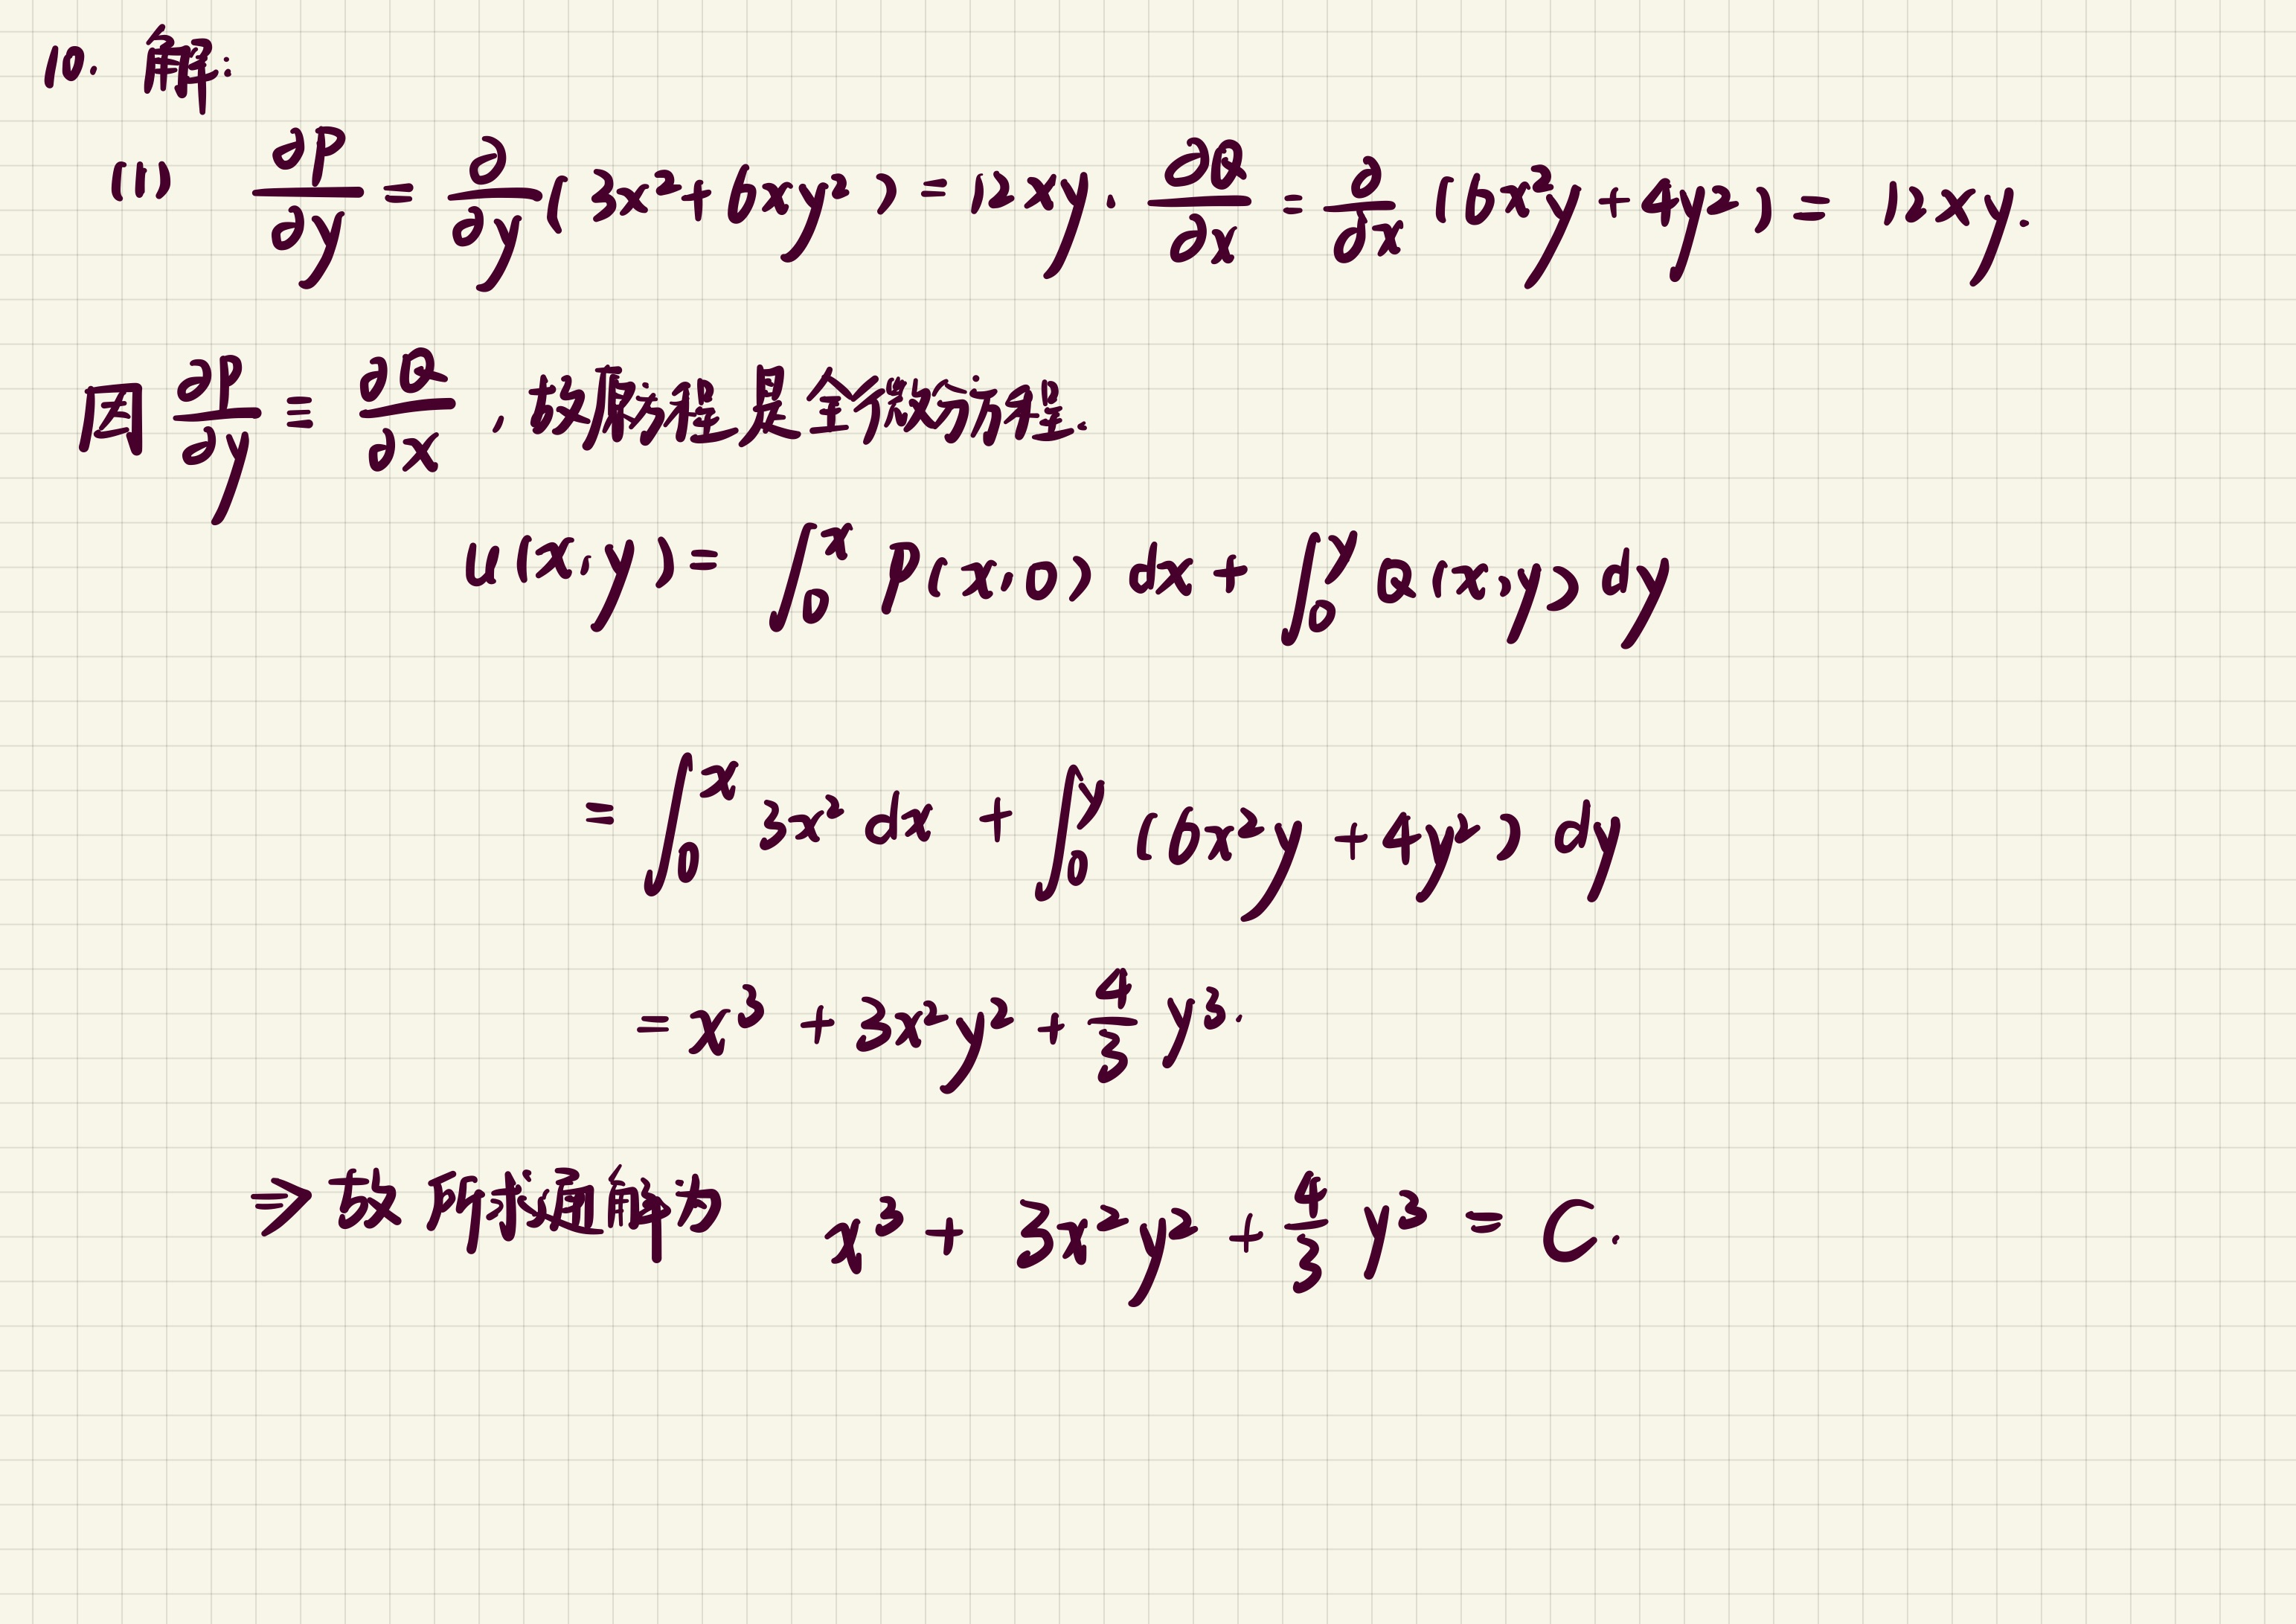 10. 解:
(1) ∂P/∂y = ∂/∂y (3x²+6xy²) = 12xy. ∂Q/∂x = ∂/∂x (6x²y+4y²) = 12xy.
因 ∂P/∂y ≡ ∂Q/∂x, 故原方程是全微分方程.
u(x,y) = ∫₀ˣ P(x,0) dx + ∫₀ʸ Q(x,y) dy
= ∫₀ˣ 3x² dx + ∫₀ʸ (6x²y+4y²) dy
= x³ + 3x²y² + 4/3 y³.
⇒ 故所求通解为 x³ + 3x²y² + 4/3 y³ = C.